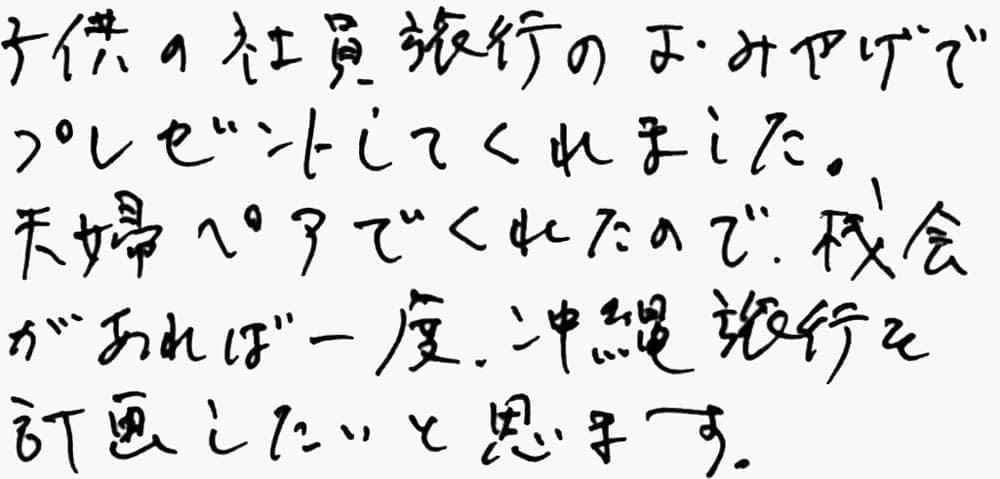 子供の社員旅行のおみやげで
プレゼントしてくれました。
夫婦ペアでくれたので、機会
があれば一度、沖縄旅行を
計画したいと思います。